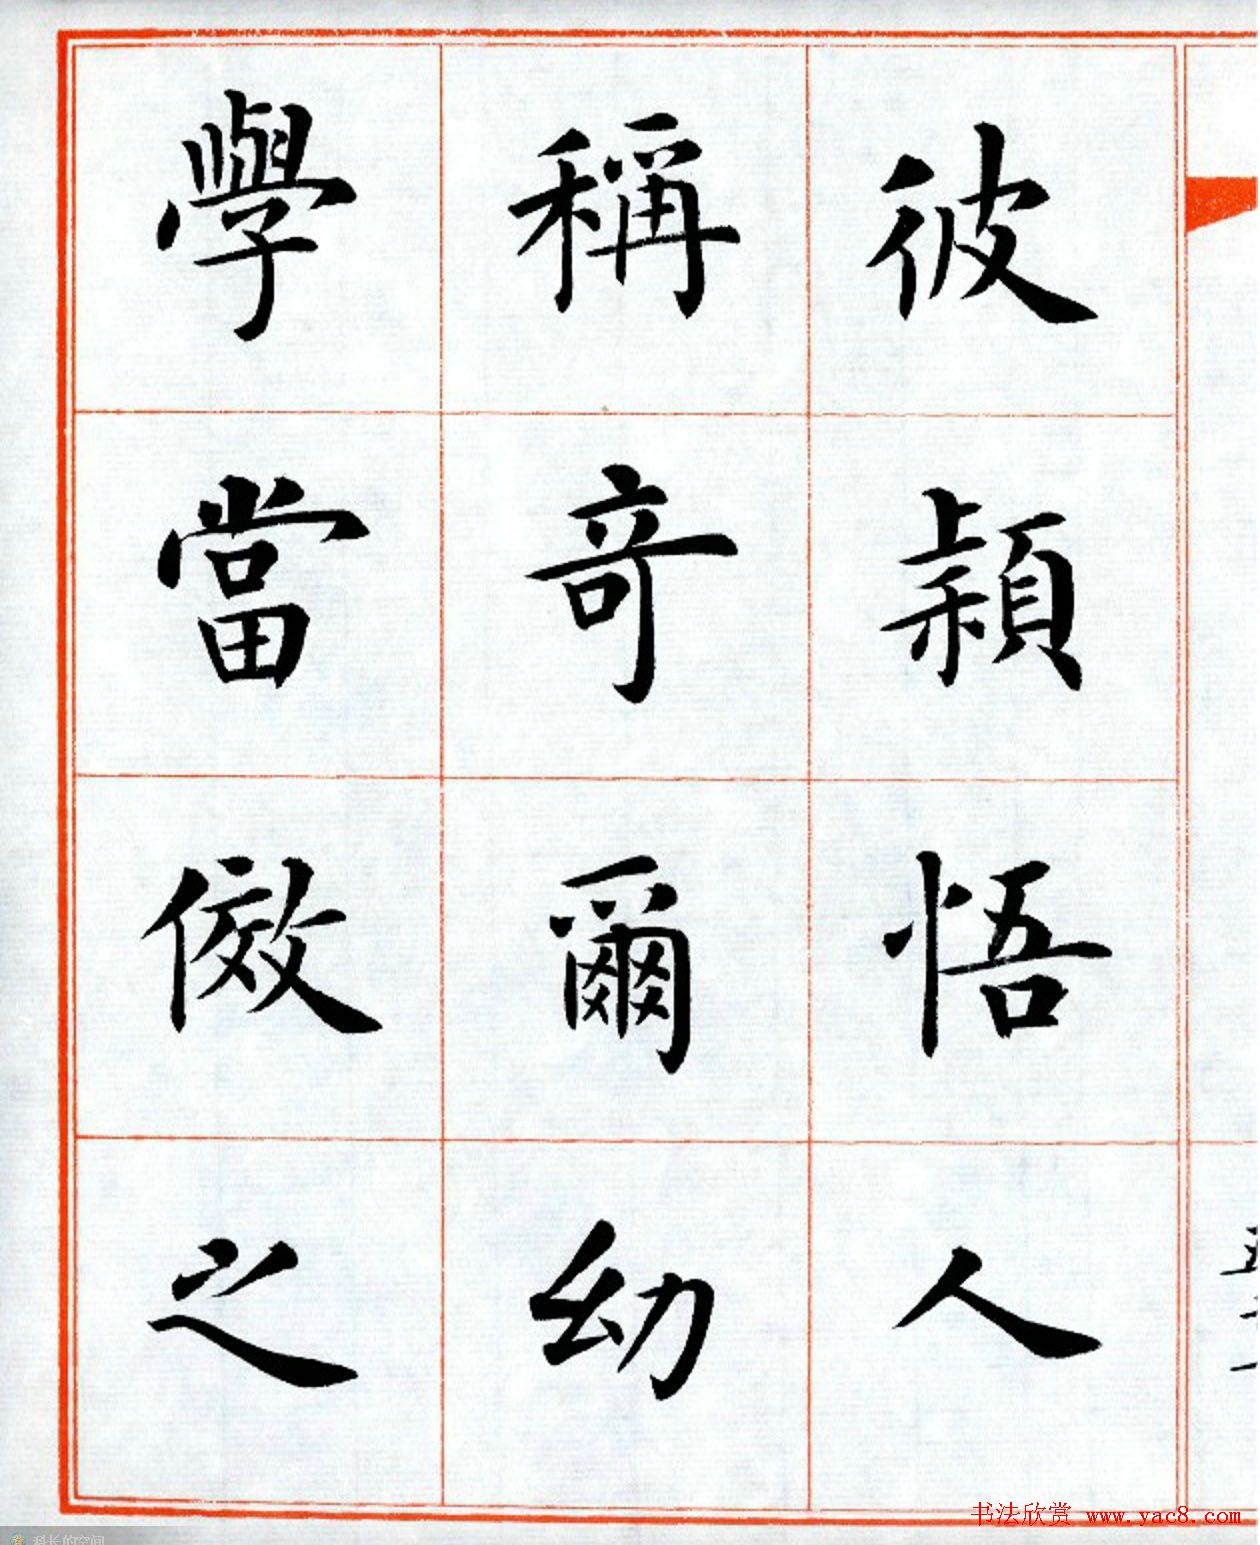 彼穎悟人
稱奇爾幼
學當傚之
书法欣赏 www.yac8.com
科长的空间